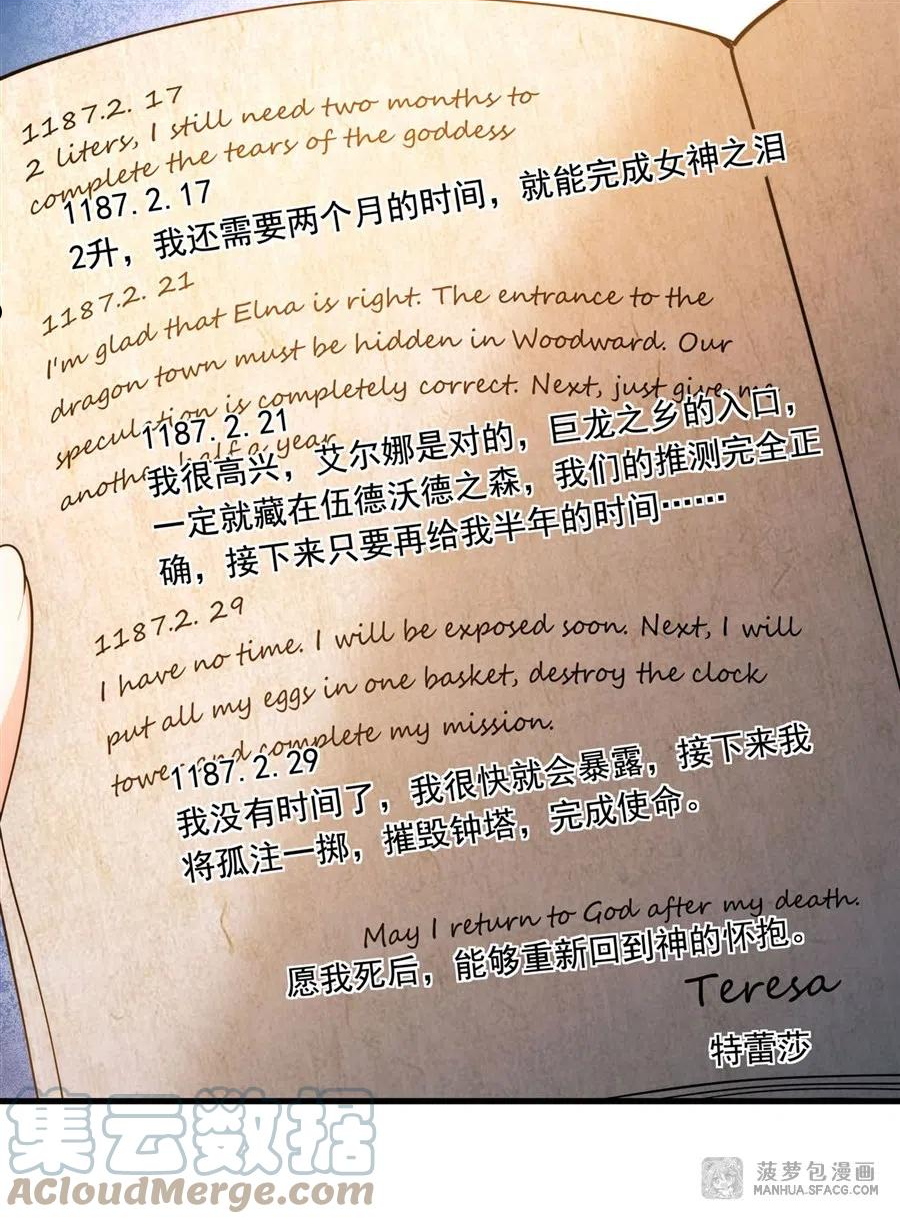 1187.2. 17
2 liters, I still need two months to
complete the tears of the goddess
1187.2.17
2升，我还需要两个月的时间，就能完成女神之泪
1187.2. 21
I'm glad that Elna is right. The entrance to the
dragon town must be hidden in Woodward. Our
speculation is completely correct. Next, just give me
another half a year
1187.2.21
我很高兴，艾尔娜是对的，巨龙之乡的入口，
一定就藏在伍德沃德之森，我们的推测完全正
确，接下来只要再给我半年的时间……
1187.2. 29
I have no time. I will be exposed soon. Next, I will
put all my eggs in one basket, destroy the clock
tower and complete my mission.
1187.2.29
我没有时间了，我很快就会暴露，接下来我
将孤注一掷，摧毁钟塔，完成使命。
May I return to God after my death.
愿我死后，能够重新回到神的怀抱。
Teresa
特蕾莎
集云数据
AcloudMerge.com
菠萝包漫画
MANHUA.SFACG.COM